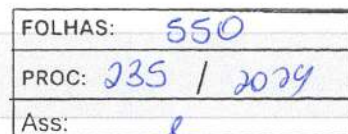 FOLHAS: 550
PROC: 235 / 2024
Ass: